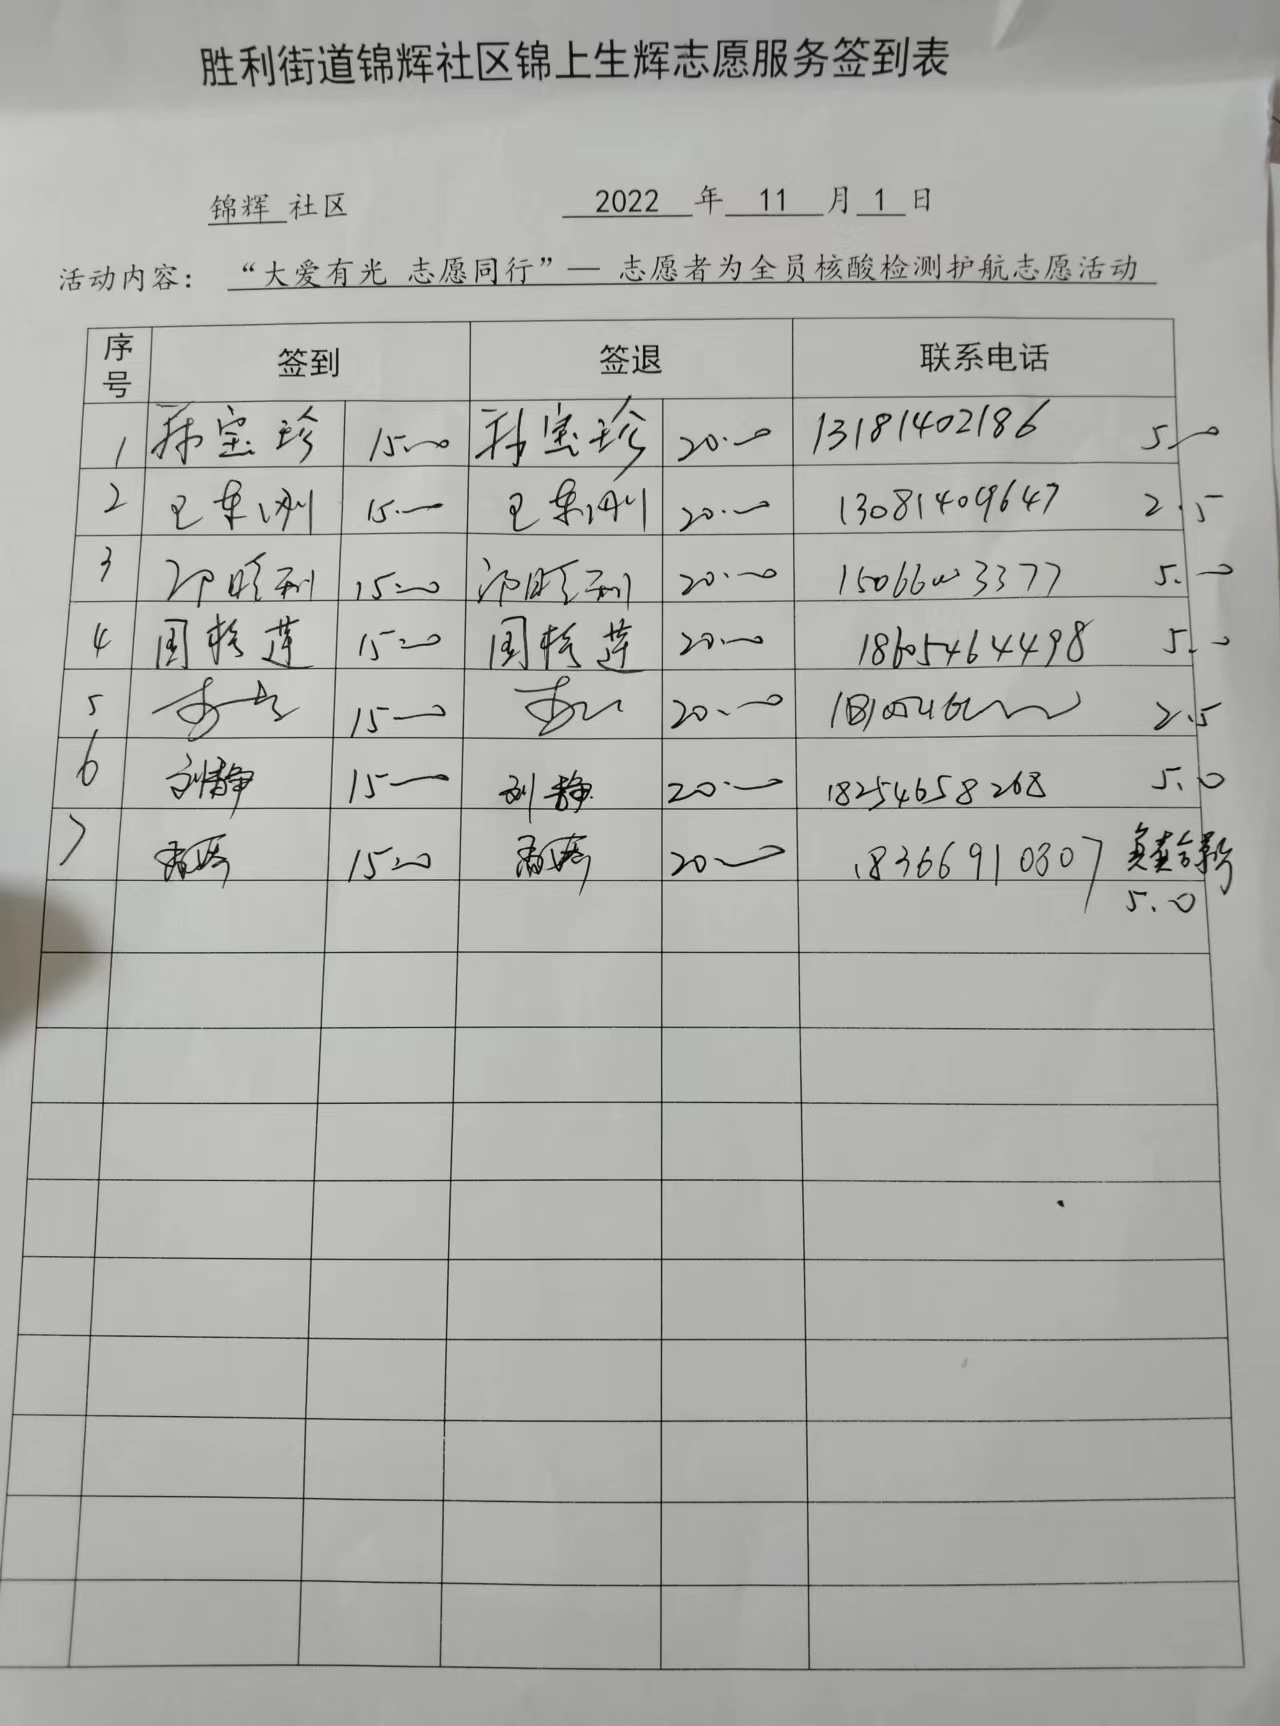 胜利街道锦辉社区锦上生辉志愿服务签到表
锦辉 社区 2022 年 11 月 1 日
活动内容： “大爱有光 志愿同行”— 志愿者为全员核酸检测护航志愿活动
序号 签到 签退 联系电话
1 孙宝珍 15:00 孙宝珍 20:00 13181402186 5.0
2 15:00 20:00 13081409647 2.5
3 15:00 20:00 15066003377 5.0
4 周桂莲 15:00 周桂莲 20:00 18605464498 5.0
5 15:00 20:00 2.5
6 刘静 15:00 刘静 20:00 18254658268 5.0
7 15:00 20:00 18366910307
5.0